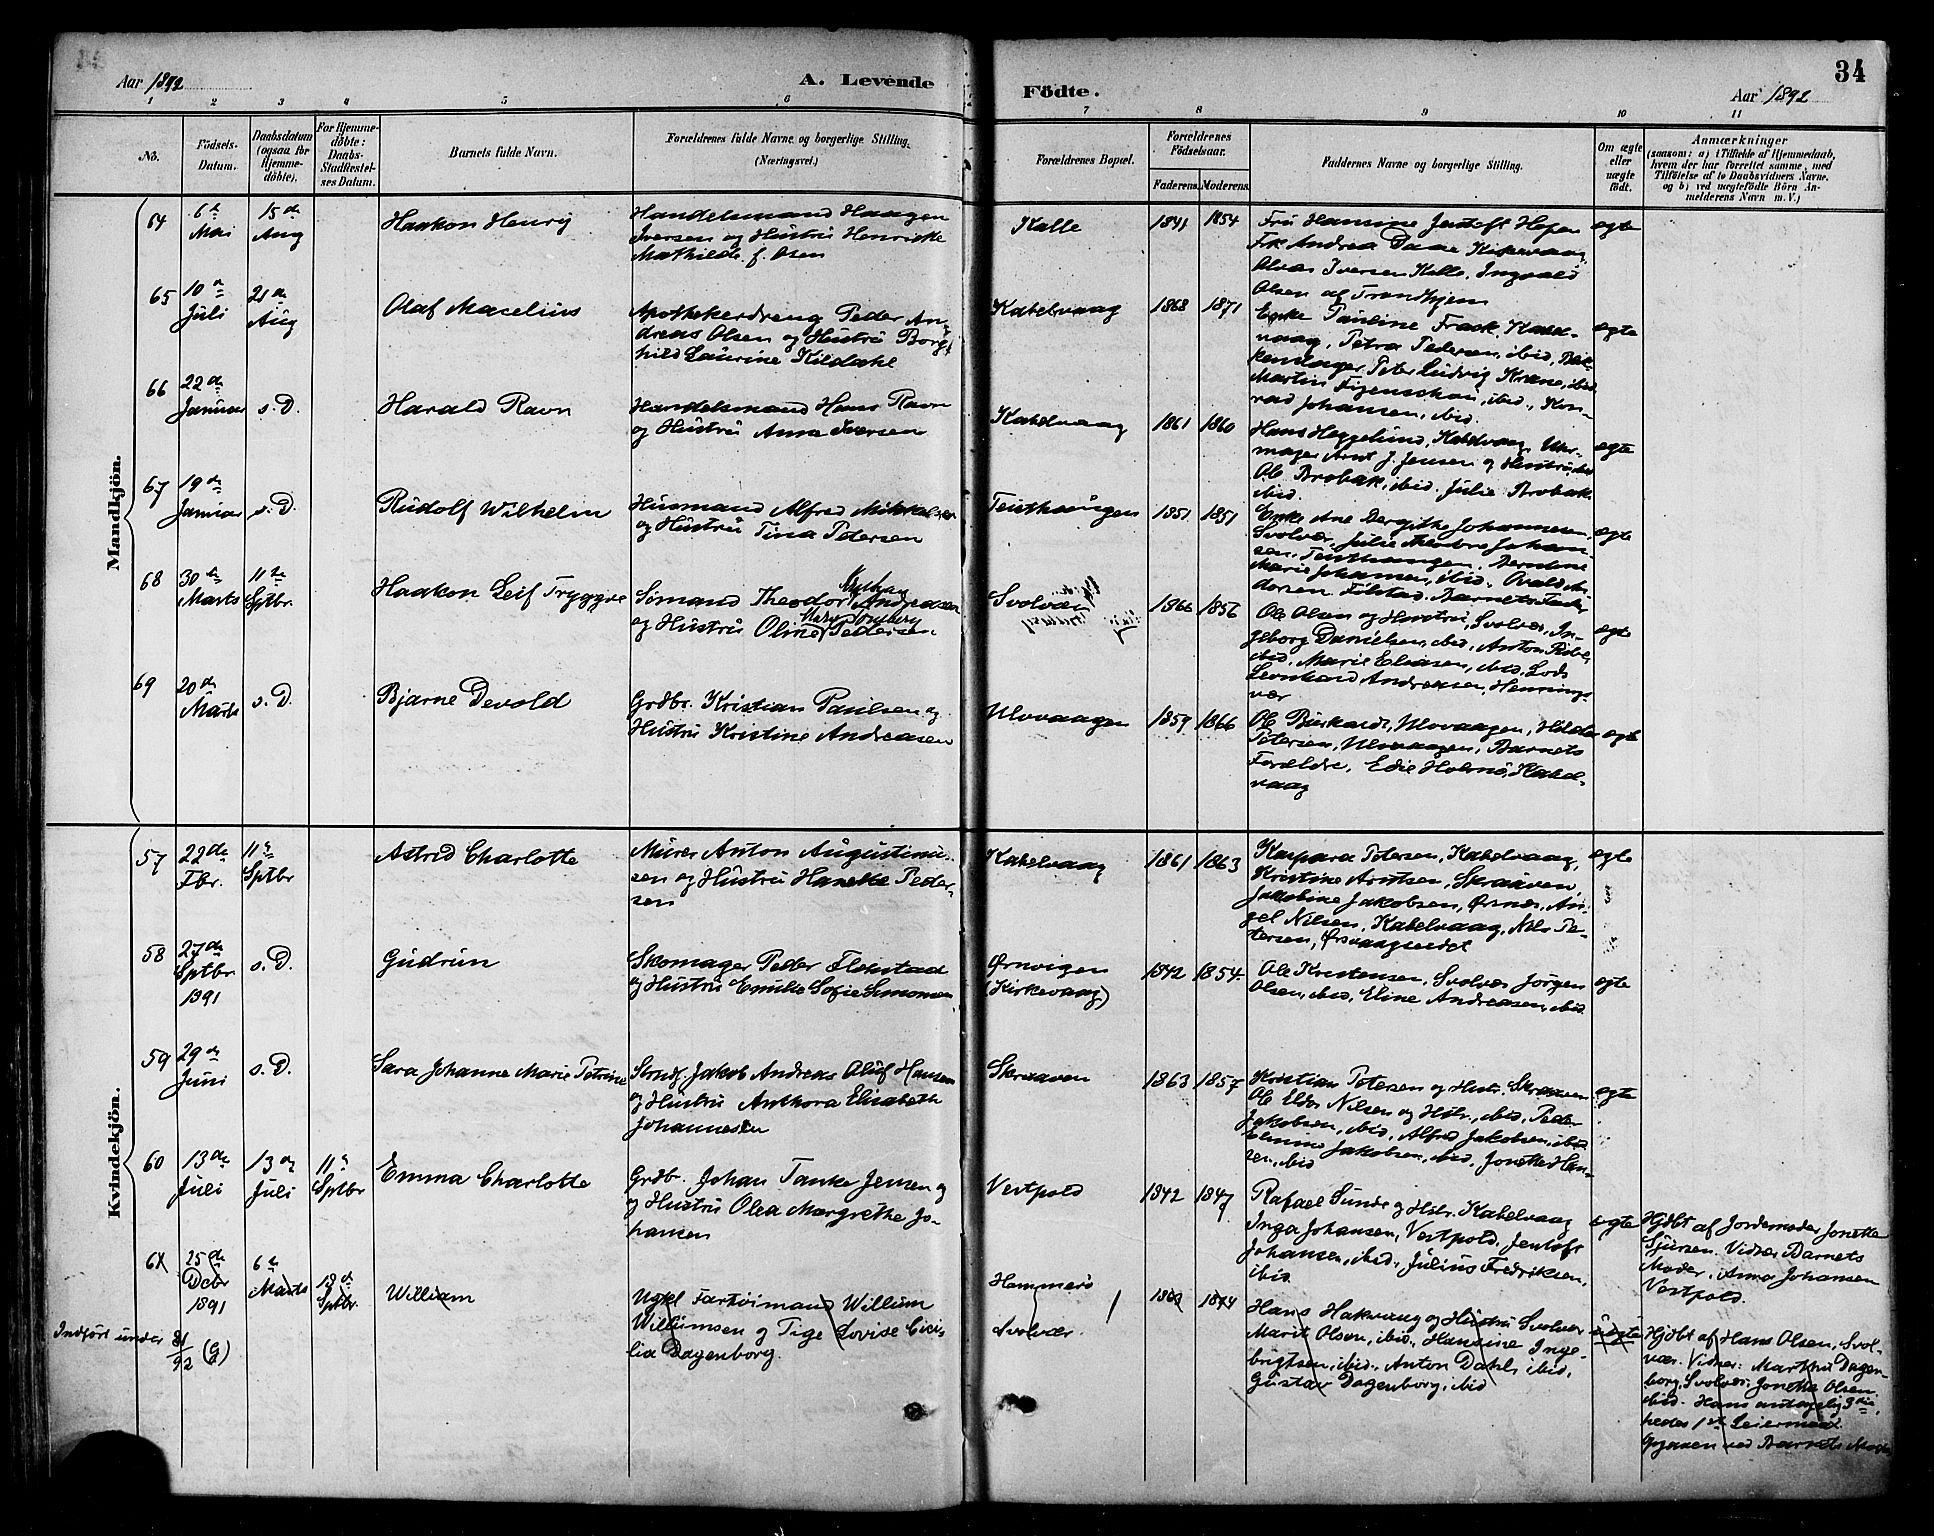 Aar 1892
A. Levende
Födte.
34
Aar 1892
1 2 3 4 5 6 7 8 9 10 11
No.
Födsels-
Datum.
Daabsdatum
(ogsaa for
Hjemme-
döbte).
For Hjemme-
döbte:
Daabs-
Stadfæstel-
ses Datum.
Barnets fulde Navn.
Forældrenes fulde Navne og borgerlige Stilling.
(Næringsvei.)
Forældrenes Bopæl.
Forældrenes
Födselsaar.
Faderens. Moderens.
Faddernes Navne og borgerlige Stilling.
Om ægte
eller
uægte
födt.
Anmærkninger
(saasom: a) i Tilfælde af Hjemmedaab,
hvem der har forrettet samme, med
Tilföielse af to Daabsvidners Navne,
og b) ved uægtefödte Börn An-
melderens Navn m. V.)
Mandkjön.
64
6te
Mai
15de
Aug
Haakon Henry
Handelsmand Haagen
Iversen og Hustru Henrikke
Mathilde f. Olsen
Kalle
1841 1854
Fru Hansine Jentoft
Frk Andrea Daae Kirkevaag,
Iversen Kalle, Ingvald
Olsen af Trondhjem
ægte
65
10de
Juli
21de
Aug
Olaf Macelius
Apothekerdreng Peder An-
dreas Olsen og Hustru Borg-
hild Laurine Kildahl
Kabelvaag
1868 1871
Enke Pauline Frask, Kabel-
vaag, Petra Pedersen, ibid,
Peter Ludvig Krane, ibid
Martin Figenschau, ibid., Kon-
rad Johansen, ibid.
ægte
66
22de
Januar
s. D.
Harald Ravn
Handelsmand Hans Ravn
og Hustru Anna Iversen
Kabelvaag
1861 1860
Hans Heggelund, Kabelvaag, Uhr-
mager Arnt J. Jensen og Hustru, ibid
Ole Brobak, ibid, Julie Brobak
ibid.
ægte
67
19de
Januar
s. D.
Rudolf Wilhelm
Husmand Alfred Mikkelsen
og Hustru Tina Petersen
Tenthaugen
1851 1851
Enke Ane Bergithe Johannesen,
Svolvær, Julie Johan-
sen, Tenthaugen, Berntine
Marie Johansen, ibid,
Barnets Fader
ægte
68
30te
Marts
11te
Sptbr.
Haakon Leif Tryggve
Sömand Theodor Andreasen
og Hustru Oline Pedersen.
Svolvær
1866 1856
Ole Olsen og Hustru, Svolvær, In-
geborg Danielsen, ibid, Anton
ibid, Marie Eliasen, ibid, Lods
Leonhard Andreasen, Hennings-
vær
ægte
69
20de
Marts
s. D.
Bjarne Devold
Grdbr. Kristian Paulsen og
Hustru Kristine Andreasen
Ulvaagen
1859 1866
Ole Burkardt, Ulvaagen, Hilda
Petersen, Ulvaagen, Barnets
Forældre, Edie Holmö, Kabel-
vaag
ægte
Kvindekjön.
57
22de
Fbr.
11te
Sptbr
Astrid Charlotte
Murer Anton Augustinus-
sen og Hustru Hanekke Peder-
sen
Kabelvaag
1861 1863
Kaspara Petersen, Kabelvaag,
Kristine Arntsen, Skraaven,
Jakobine Jakobsen, Örsnes, An-
gel Nilsen, Kabelvaag, Nils Pe-
tersen, Örsvaagseidet
ægte
58
27de
Sptbr.
1891
s. D.
Gudrun
Skomager Peder Flakstad
og Hustru Emilie Sofie Simonsen
Ørnvigen
(Kirkevaag)
1842 1854
Ole Kristensen, Svolvær Jörgen
Olsen, ibid, Eline Andreasen, ibid.
ægte
59
29de
Juni
s. D.
Sara Johanne Marie Petrine
Strndf. Jakob Andreas Oluf Hansen
og Hustru Anthora Elisabeth
Johannesen
Skraaven
1863 1857
Kristian Petersen og Hust. Skraaven
Ole Elder Nilsen og Hstr., ibid, Peder
Jakobsen, ibid, Alfred Jakobsen, ibid
Elmine Jakobsen, ibid, Jonette Han-
sen, ibid
ægte
60
13de
Juli
13de
Juli
11te
Sptbr
Emma Charlotte
Grdb. Johan Tanke Jensen og
og Hustru Olea Margrethe Jo-
hansen
Vestpold
1842 1847
Rafael Sunde og Hstr. Kabelvaag
Inga Johansen, Vestpold, Jentoft
Johansen, ibid, Julius Fredriksen,
ibid.
ægte
Hjdbt af Jordemoder Jonette
Sjursen. Vidner Barnets
Moder, Anna Johansen
Vestpold.
61
25de
Dcbr
1891
6te
Marts
18de
Sptbr.
William
Ugkl Fartöimand Willum
Willumsen og Pige Lovise Ceci-
lia Dagenborg.
Hammerö
Svolvær.
1869 1874
Hans Hakvaag og Hustru Svolvær
Marit Olsen, ibid, Hansine Inge-
brigtsen, ibid, Anton Dahl, ibid,
Gustav Dagenborg, ibid
uægte
Hjdbt af Hans Olsen, Svol-
vær. Vidner: Martha Dagen-
borg, Svolvær, Jonetha Olsen
ibid. Hans
hendes 1ste Leiermaal
ved Barnets Moder
Indfört under 31/92 (G)